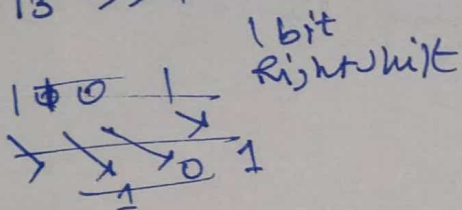 13 >>
1 bit
Right shift
1 0 1
0 1
1